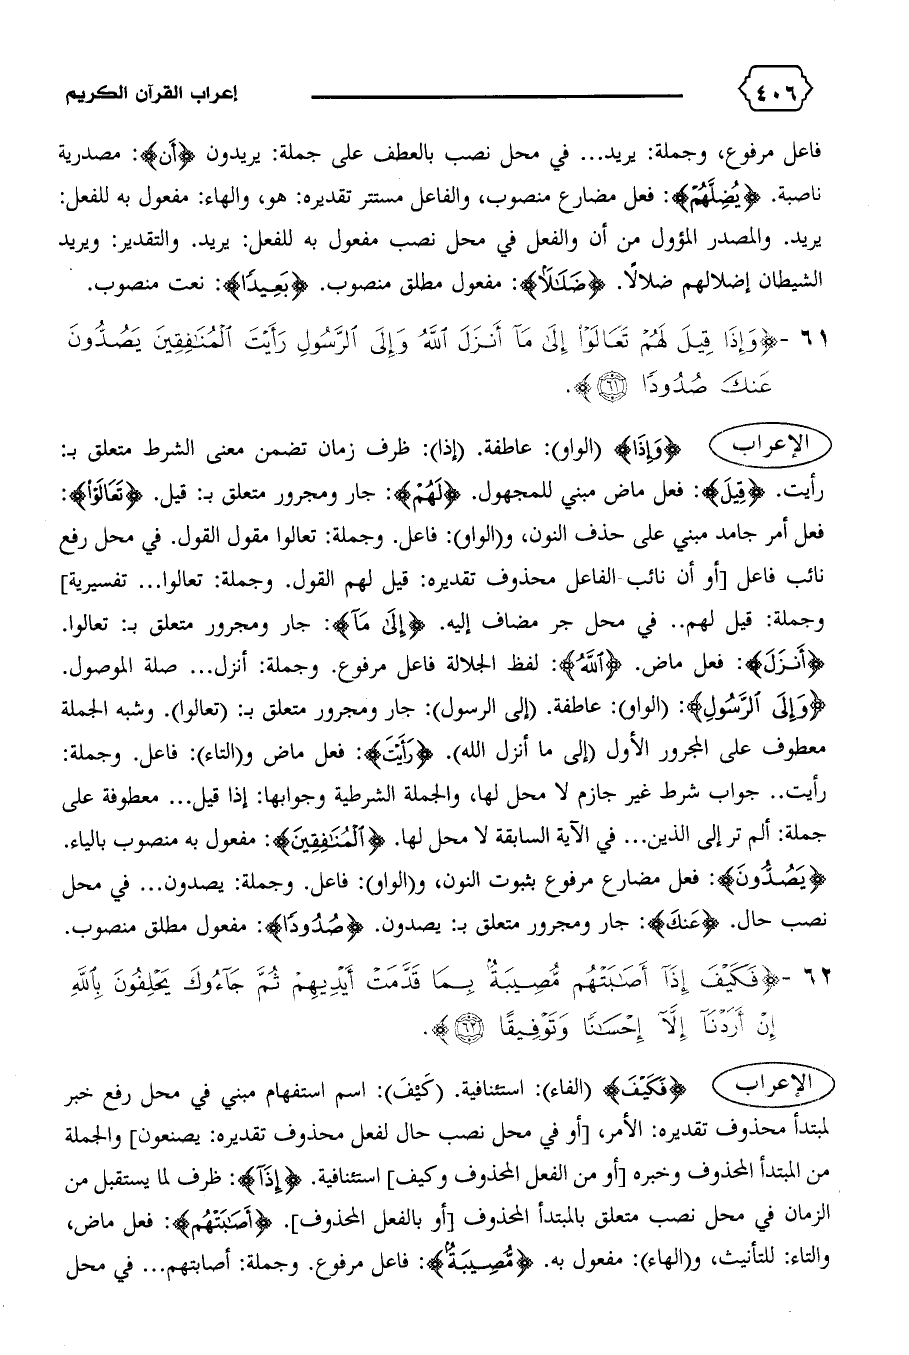 ٤٠٦ إعراب القرآن الكريم
فاعل مرفوع، وجملة: يريد... في محل نصب بالعطف على جملة: يريدون ﴿أَن﴾: مصدرية
ناصبة. ﴿يُضِلَّهُمْ﴾: فعل مضارع منصوب، والفاعل مستتر تقديره: هو، والهاء: مفعول به للفعل:
يريد. والمصدر المؤول من أن والفعل في محل نصب مفعول به للفعل: يريد. والتقدير: ويريد
الشيطان إضلالهم ضلالًا. ﴿ضَلَـٰلًا﴾: مفعول مطلق منصوب. ﴿بَعِيدًا﴾: نعت منصوب.
٦١ -﴿وَإِذَا قِيلَ لَهُمْ تَعَالَوْا۟ إِلَىٰ مَآ أَنزَلَ ٱللَّهُ وَإِلَى ٱلرَّسُولِ رَأَيْتَ ٱلْمُنَـٰفِقِينَ يَصُدُّونَ
عَنكَ صُدُودًا ۝٦١﴾.
الإعراب ﴿وَإِذَا﴾ (الواو): عاطفة. (إذا): ظرف زمان تضمن معنى الشرط متعلق بـ:
رأيت. ﴿قِيلَ﴾: فعل ماض مبني للمجهول. ﴿لَهُمْ﴾: جار ومجرور متعلق بـ: قيل. ﴿تَعَالَوْا۟﴾:
فعل أمر جامد مبني على حذف النون، و(الواو): فاعل. وجملة: تعالوا مقول القول. في محل رفع
نائب فاعل [أو أن نائب الفاعل محذوف تقديره: قيل لهم القول. وجملة: تعالوا... تفسيرية]
وجملة: قيل لهم.. في محل جر مضاف إليه. ﴿إِلَىٰ مَآ﴾: جار ومجرور متعلق بـ: تعالوا.
﴿أَنزَلَ﴾: فعل ماض. ﴿ٱللَّهُ﴾: لفظ الجلالة فاعل مرفوع. وجملة: أنزل... صلة الموصول.
﴿وَإِلَى ٱلرَّسُولِ﴾: (الواو): عاطفة. (إلى الرسول): جار ومجرور متعلق بـ: (تعالوا). وشبه الجملة
معطوف على المجرور الأول (إلى ما أنزل الله). ﴿رَأَيْتَ﴾: فعل ماض و(التاء): فاعل. وجملة:
رأيت.. جواب شرط غير جازم لا محل لها، والجملة الشرطية وجوابها: إذا قيل... معطوفة على
جملة: ألم تر إلى الذين... في الآية السابقة لا محل لها. ﴿ٱلْمُنَـٰفِقِينَ﴾: مفعول به منصوب بالياء.
﴿يَصُدُّونَ﴾: فعل مضارع مرفوع بثبوت النون، و(الواو): فاعل. وجملة: يصدون... في محل
نصب حال. ﴿عَنكَ﴾: جار ومجرور متعلق بـ: يصدون. ﴿صُدُودًا﴾: مفعول مطلق منصوب.
٦٢ -﴿فَكَيْفَ إِذَآ أَصَـٰبَتْهُم مُّصِيبَةٌۢ بِمَا قَدَّمَتْ أَيْدِيهِمْ ثُمَّ جَآءُوكَ يَحْلِفُونَ بِٱللَّهِ
إِنْ أَرَدْنَآ إِلَّآ إِحْسَـٰنًا وَتَوْفِيقًا ۝٦٢﴾.
الإعراب ﴿فَكَيْفَ﴾ (الفاء): استئنافية. (كَيْفَ): اسم استفهام مبني في محل رفع خبر
لمبتدأ محذوف تقديره: الأمر، [أو في محل نصب حال لفعل محذوف تقديره: يصنعون] والجملة
من المبتدأ المحذوف وخبره [أو من الفعل المحذوف وكيف] استئنافية. ﴿إِذَآ﴾: ظرف لما يستقبل من
الزمان في محل نصب متعلق بالمبتدأ المحذوف [أو بالفعل المحذوف]. ﴿أَصَـٰبَتْهُم﴾: فعل ماض،
والتاء: للتأنيث، و(الهاء): مفعول به. ﴿مُّصِيبَةٌۢ﴾: فاعل مرفوع. وجملة: أصابتهم... في محل